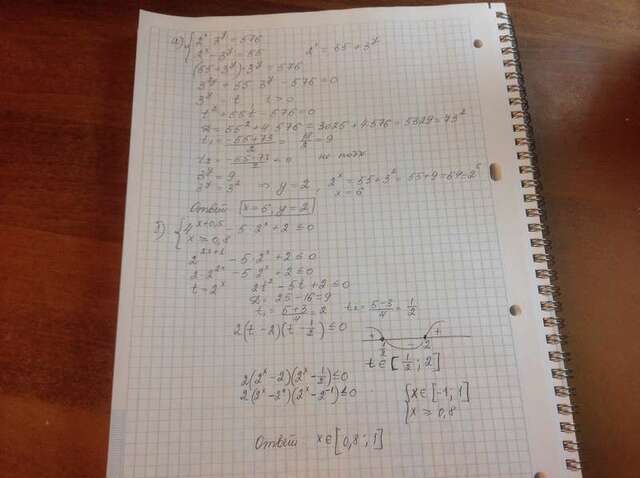 а) { 2ˣ·3ʸ = 576
2ˣ - 3ʸ = 55 2ˣ = 55 + 3ʸ
(55 + 3ʸ)·3ʸ = 576
3²ʸ + 55·3ʸ - 576 = 0
3ʸ = t t > 0
t² + 55t - 576 = 0
D = 55² + 4·576 = 3025 + 4·576 = 5329 = 73²
t₁ = (-55+73)/2 = 18/2 = 9
t₂ = (-55-73)/2 < 0 не подх
3ʸ = 9
3ʸ = 3² ⇒ y = 2, 2ˣ = 55 + 3² = 55 + 9 = 64 = 2⁶
x = 6
Ответ [x = 6, y = 2]
б) { 4ˣ⁺⁰·⁵ - 5·2ˣ + 2 ≤ 0
x ≥ 0,8
2²ˣ⁺¹ - 5·2ˣ + 2 ≤ 0
2·2²ˣ - 5·2ˣ + 2 ≤ 0
t = 2ˣ 2t² - 5t + 2 ≤ 0
D = 25 - 16 = 9
t₁ = (5+3)/4 = 2 t₂ = (5-3)/4 = 1/2
2(t - 2)(t - 1/2) ≤ 0
+ - +
1/2 2
t ∈ [1/2; 2]
2(2ˣ - 2)(2ˣ - 1/2) ≤ 0
2(2ˣ - 2¹)(2ˣ - 2⁻¹) ≤ 0 { x ∈ [-1; 1]
x ≥ 0,8
Ответ x ∈ [0,8; 1]